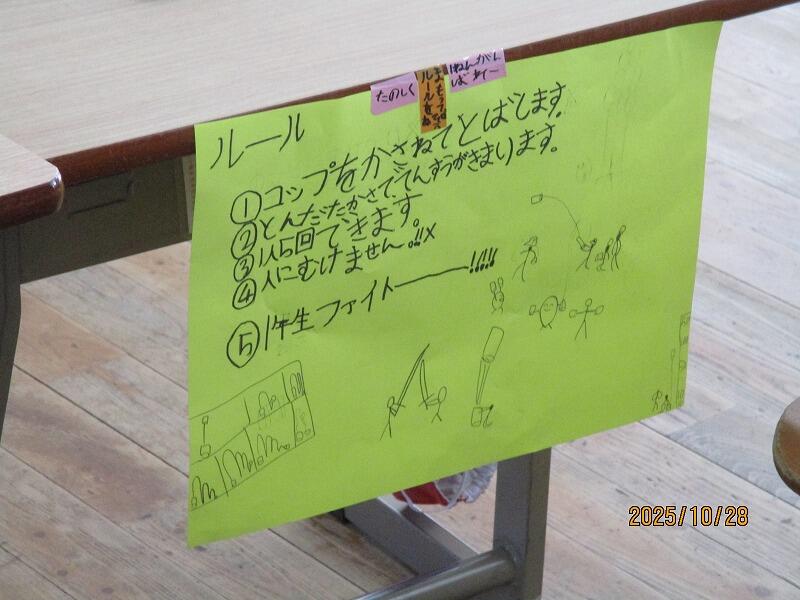 たのしく
まもってね
ルールを
ルール
①コップをかさねてとばします
②とんだたかさでてんすうがきまります。
③1人5回できます。
④人にむけません!!×
⑤1年生ファイトー!!!!
2025/10/28